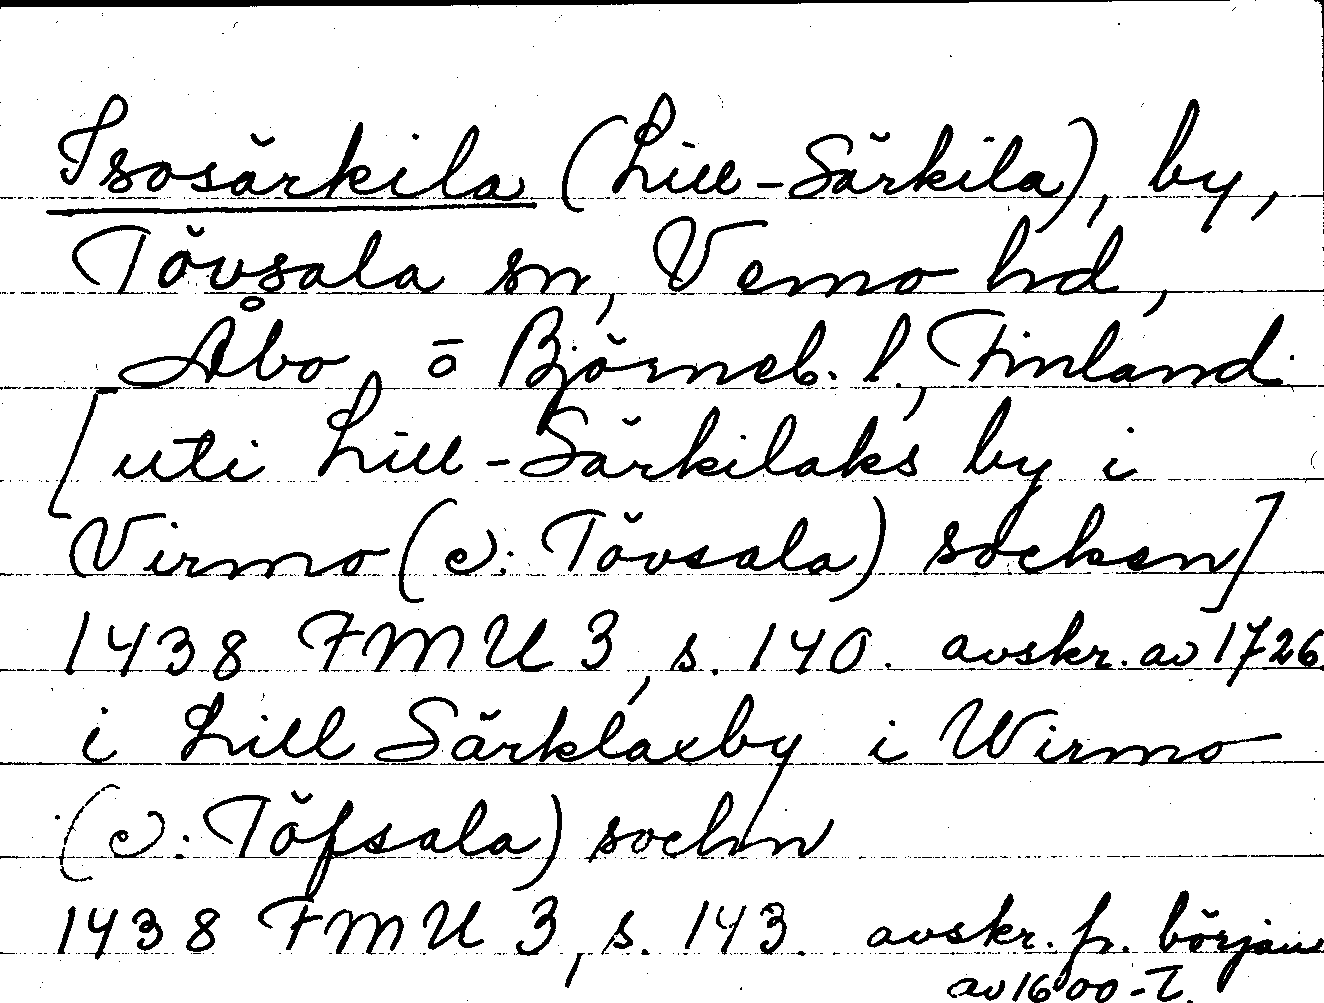 Isosärkila (Lill-Särkila), by,
Tövsala sn, Vemo hd,
Åbo o Björneb. l., Finland.
[uti Lill-Särkilaks by i
Virmo (ɔ: Tövsala) socken]
1438 FMU 3, s. 140. avskr. av 1726
i Lill Särklaxby i Wirmo
(ɔ: Töfsala) sochn
1438 FMU 3, s. 143. avskr. fr. början
av 1600-t.